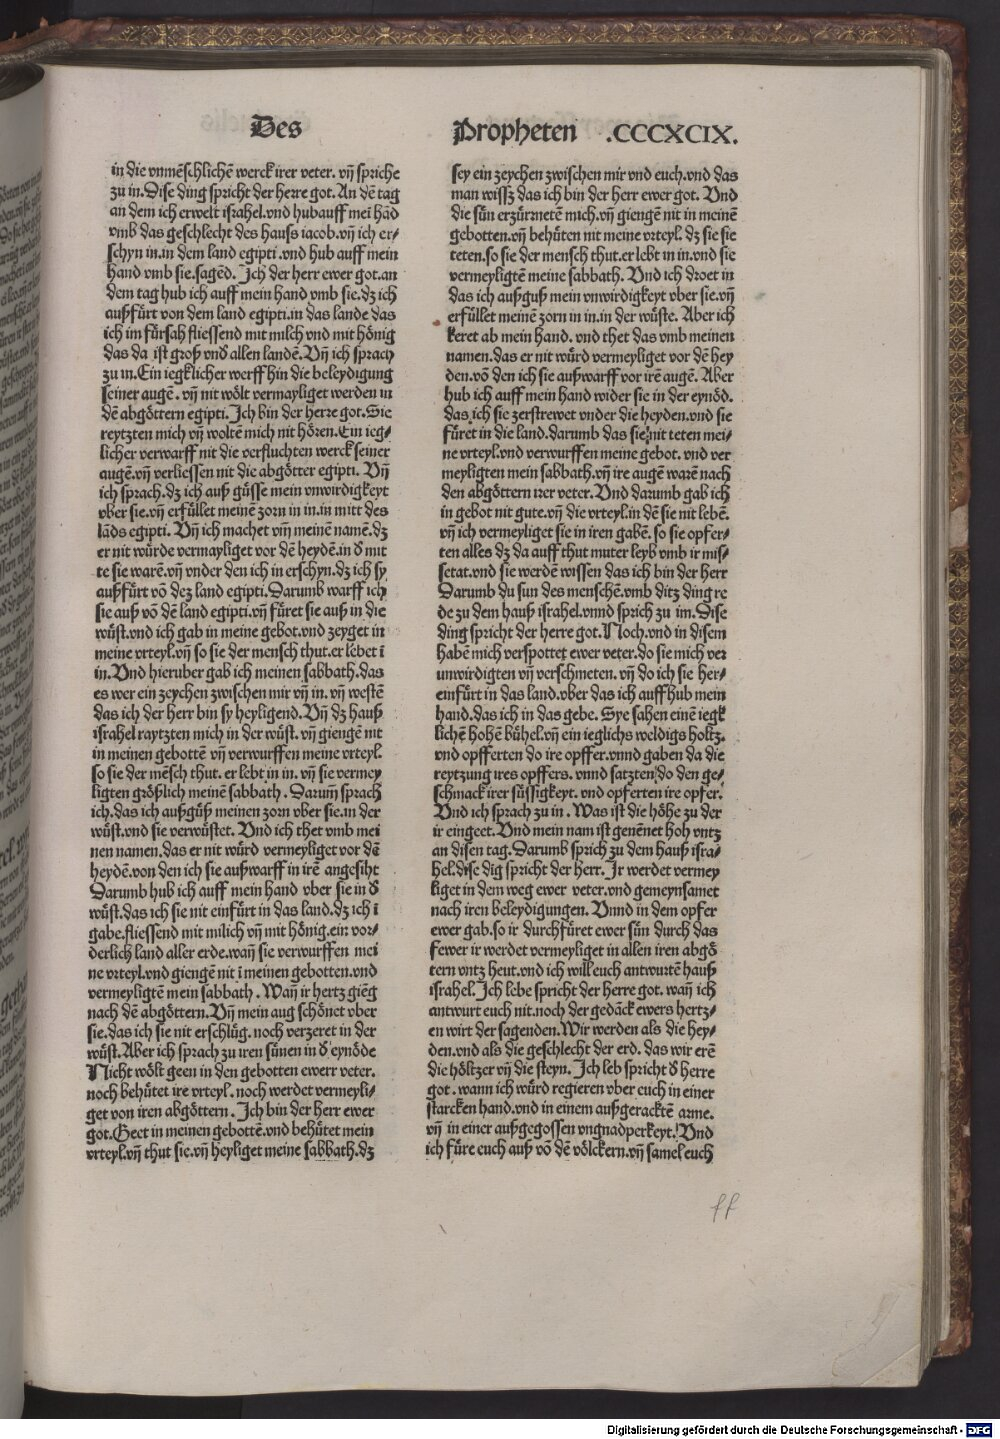 Des
Propheten .CCCXCIX.
in die vnmẽschlichẽ werck irer veter. vñ spriche
zu in. Dise ding spricht der herre got. An dẽ tag
an dem ich erwelt israhel. vnd hubauff mei hãd
vmb das geschlecht des hauss iacob. vñ ich er-
schyn in. in dem land egipti. vnd hub auff mein
hand vmb sie. sagẽd. Jch der herr ewer got. an
dem tag hub ich auff mein hand vmb sie. dz ich
außfürt von dem land egipti. in das lande das
ich im fürsah fliessend mit milch vnd mit hönig
das da ist groß vnd̃ allen landẽ. Vñ ich sprach
zu in. Ein iegklicher werff hin die beleydigung
seiner augẽ. vñ nit wölt vermayliget werden in
dẽ abgöttern egipti. Jch bin der herre got. Sie
reytzten mich vñ woltẽ mich nit hören. Ein ieg-
licher verwarff nit die verfluchten werck seiner
augẽ. vñ verliessen nit die abgötter egipti. Vñ
ich sprach. dz ich auß güsse mein vnwirdigkeyt
vber sie. vñ erfüllet meinẽ zorn in in. in mitt des
lãds egipti. Vñ ich machet vm̃ meinẽ namẽ. dz
er nit würde vermayliget vor dẽ heydẽ. in d̃ mit
te sie warẽ. vñ vnder den ich in erschyn. dz ich sy
außfürt võ dez land egipti. Darumb warff ich
sie auß võ dẽ land egipti. vñ füret sie auß in die
wüst. vnd ich gab in meine gebot. vnd zeyget in
meine vrteyl. vñ so sie der mensch thut. er lebet ĩ
in. Vnd hieruber gab ich meinen sabbath. das
es wer ein zeychen zwischen mir vñ in. vñ westẽ
das ich der herr bin sy heyligend. Vñ dz hauß
israhel raytzten mich in der wüst. vñ giengẽ nit
in meinen gebottẽ vñ verwurffen meine vrteyl.
so sie der mẽsch thut. er lebt in in. vñ sie vermey
ligten größlich meinẽ sabbath. Darum̃ sprach
ich. das ich außgüß meinen zorn vber sie. in der
wüst. vnd sie verwüstet. Vnd ich thet vmb mei
nen namen. das er nit würd vermeyliget vor dẽ
heydẽ. von den ich sie außwarff in irẽ angesiht
Darumb hub ich auff mein hand vber sie in d̃
wüst. das ich sie nit einfürt in das land. dz ich ĩ
gabe. fliessend mit milich vñ mit hönig. ein vor-
derlich land aller erde. wañ sie verwurffen mei
ne vrteyl. vnd giengẽ nit ĩ meinen gebotten. vnd
vermeyligtẽ mein sabbath. Wañ ir hertz giẽg
nach dẽ abgöttern. Vñ mein aug schönet vber
sie. das ich sie nit erschlüg. noch verzeret in der
wüst. Aber ich sprach zu iren sünen in d̃ eynöde
Nicht wölt geen in den gebotten ewerr veter.
noch behütet ire vrteyl. noch werdet vermeyli-
get von iren abgöttern. Jch bin der herr ewer
got. Geet in meinen gebottẽ. vnd behütet mein
vrteyl. vñ thut sie. vñ heyliget meine sabbath. dz
sey ein zeychen zwischen mir vnd euch. vnd das
man wissz das ich bin der herr ewer got. Vnd
die sün erzürnetẽ mich. vñ giengẽ nit in meinẽ
gebotten. vñ behüten nit meine vrteyl. dz sie sie
teten. so sie der mensch thut. er lebt in in. vnd sie
vermeyligtẽ meine sabbath. Vnd ich droet in
das ich außguß mein vnwirdigkeyt vber sie. vñ
erfüllet meinẽ zorn in in. in der wüste. Aber ich
keret ab mein hand. vnd thet das vmb meinen
namen. das er nit würd vermeyliget vor dẽ hey
den. võ den ich sie außwarff vor irẽ augẽ. Aber
hub ich auff mein hand wider sie in der eynöd.
das ich sie zerstrewet vnder die heyden. vnd sie
füret in die land. darumb das sie nit teten mei-
ne vrteyl. vnd verwurffen meine gebot. vnd ver
meyligten mein sabbath. vñ ire augẽ warẽ nach
den abgöttern irer veter. Vnd darumb gab ich
in gebot nit gute. vñ die vrteyl. in dẽ sie nit lebẽ.
vñ ich vermeyliget sie in iren gabẽ. so sie opfer-
ten alles dz da auff thut muter leyb vmb ir mis-
setat. vnd sie werdẽ wissen das ich bin der herr
Darumb du sun des menschẽ. vmb ditz ding re
de zu dem hauß israhel. vnnd sprich zu im. Dise
ding spricht der herre got. Noch. vnd in disem
habẽ mich verspottet ewer veter. do sie mich ver
unwirdigten vñ verschmeten. vñ do ich sie her-
einfürt in das land. vber das ich auff hub mein
hand. das ich in das gebe. Sye sahen einẽ iegk
lichẽ hohẽ bühel. vñ ein ieglichs weldigs holtz.
vnd opfferten do ire opffer. vnnd gaben da die
reytzung ires opffers. vnnd satzten do den ge-
schmack irer süssigkeyt. vnd opferten ire opfer.
Vnd ich sprach zu in. Was ist die höhe zu der
ir eingeet. Vnd mein nam ist genẽnet hoh vntz
an disen tag. Darumb sprich zu dem hauß isra-
hel. dise dĩg spricht der herr. Jr werdet vermey
liget in dem weg ewer veter. vnd gemeynsamet
nach iren beleydigungen. Vnnd in dem opfer
ewer gab. so ir durchfüret ewer sün durch das
fewer ir werdet vermeyliget in allen iren abgö
tern vntz heut. vnd ich will euch antwurtẽ hauß
israhel. Jch lebe spricht der herre got. wañ ich
antwurt euch nit. noch der gedãck ewers hertz-
en wirt der sagenden. Wir werden als die hey-
den. vnd als die geschlecht der erd. das wir erẽ
die höltzer vñ die steyn. Jch leb spricht d̃ herre
got. wann ich würd regieren vber euch in einer
starcken hand. vnd in einem außgeracktẽ arme.
vñ in einer außgegossen vngnadperkeyt. Vnd
ich füre euch auß võ dẽ völckern. vñ samel euch
ff
Digitalisierung gefördert durch die Deutsche Forschungsgemeinschaft - DFG